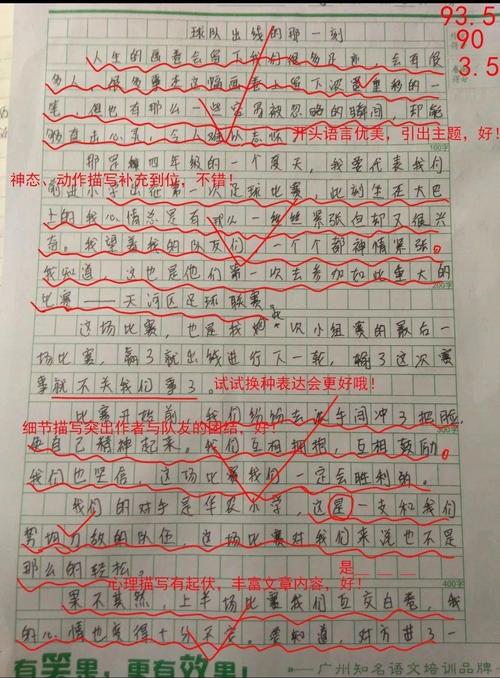 93.5
90
3.5
球队出线的那一刻
人生的画卷会留下我们很多足亦，会有很
多人，很多事在这幅画卷上留下浓墨重彩的一
笔，但也有那么一些容易被忽略的瞬间，却能
够直击心灵，令人难以忘怀。
开头语言优美，引出主题，好！
100字
那是我四年级的一个夏天，我要代表我们
神态、动作描写补充到位，不错！
小学出征第一次足球比赛，此刻坐在大巴
上的我心情总是有那么一丝丝紧张但却又很兴
奋。我望着我的队友们，一个个都神情紧张。
我知道，这也是他们第一次去参加如此重大的
200字
比赛——天河区足球联赛。
这场比赛，也是我们一次小组赛的最后一
场比赛，赢了就出线进行下一轮，输了这次赛
事就不关我们事了。
试试换种表达会更好哦！
比赛开始前，我们纷纷去洗手间冲了把脸，
细节描写突出作者与队友的团结，好！
300字
让自己精神起来。我们互相拥抱，互相鼓励。
我们也坚信，这场比赛我们一定会胜利的。
我们的对手是华农小学，这星一支和我们
势均力敌的队伍，这场比赛对我们来说也不是
那么的轻松。
是
心理描写有起伏，丰富文章内容，好！
400字
果不其然，上半场比赛我们互交白卷，我
的心情也变得十分忐忑。要知道，对方进了一
有笑果，更有效果！
——广州知名语文培训品牌